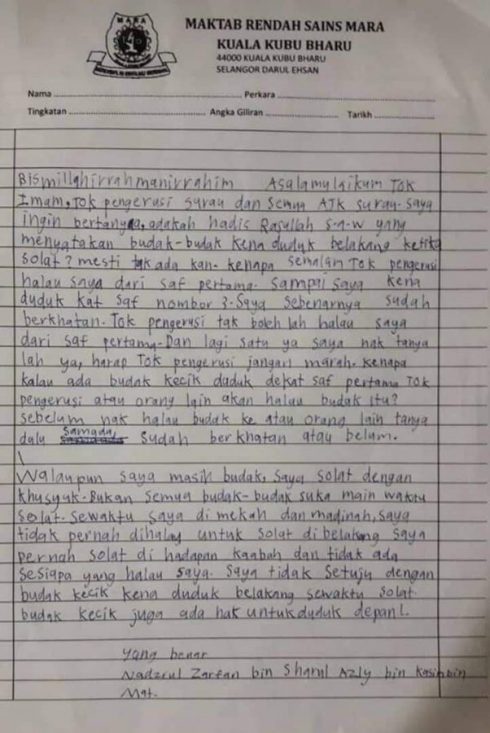 MARA
MAKTAB RENDAH SAINS MARA
KUALA KUBU BHARU
44000 KUALA KUBU BHARU
SELANGOR DARUL EHSAN
Nama ........ Perkara ........
Tingkatan ........ Angka Giliran ........ Tarikh ........
Bismillahirrahmanirrahim Asalamulaikum Tok
Imam, Tok pengerusi surau dan semua AJK surau. saya
ingin bertanya, adakah hadis Rasullah s.a.w yang
menyatakan budak-budak kena duduk belakang ketika
solat? mesti tak ada kan. kenapa semalam Tok pengerusi
halau saya dari saf pertama. sampai saya kena
duduk kat saf nombor 3. Saya sebenarnya sudah
berkhatan. Tok pengerusi tak boleh lah halau saya
dari saf pertama. Dan lagi satu ya saya nak tanya
lah ya, harap Tok pengerusi jangan marah. kenapa
kalau ada budak kecik duduk dekat saf pertama Tok
pengerusi atau orang lain akan halau budak itu?
sebelum nak halau budak ke atau orang lain tanya
dulu samada sudah berkhatan atau belum.
Walaupun saya masih budak, saya solat dengan
khusyuk. Bukan semua budak-budak suka main waktu
solat. sewaktu saya di mekah dan madinah, saya
tidak pernah dihalau untuk solat di belakang saya
pernah solat di hadapan kaabah dan tidak ada
sesiapa yang halau saya. saya tidak setuju dengan
budak kecik kena duduk belakang sewaktu solat.
budak kecik juga ada hak untuk duduk depan!.
yang benar
Nadzrul Zarfan bin Sharul Azly bin Kasim bin
Mat.